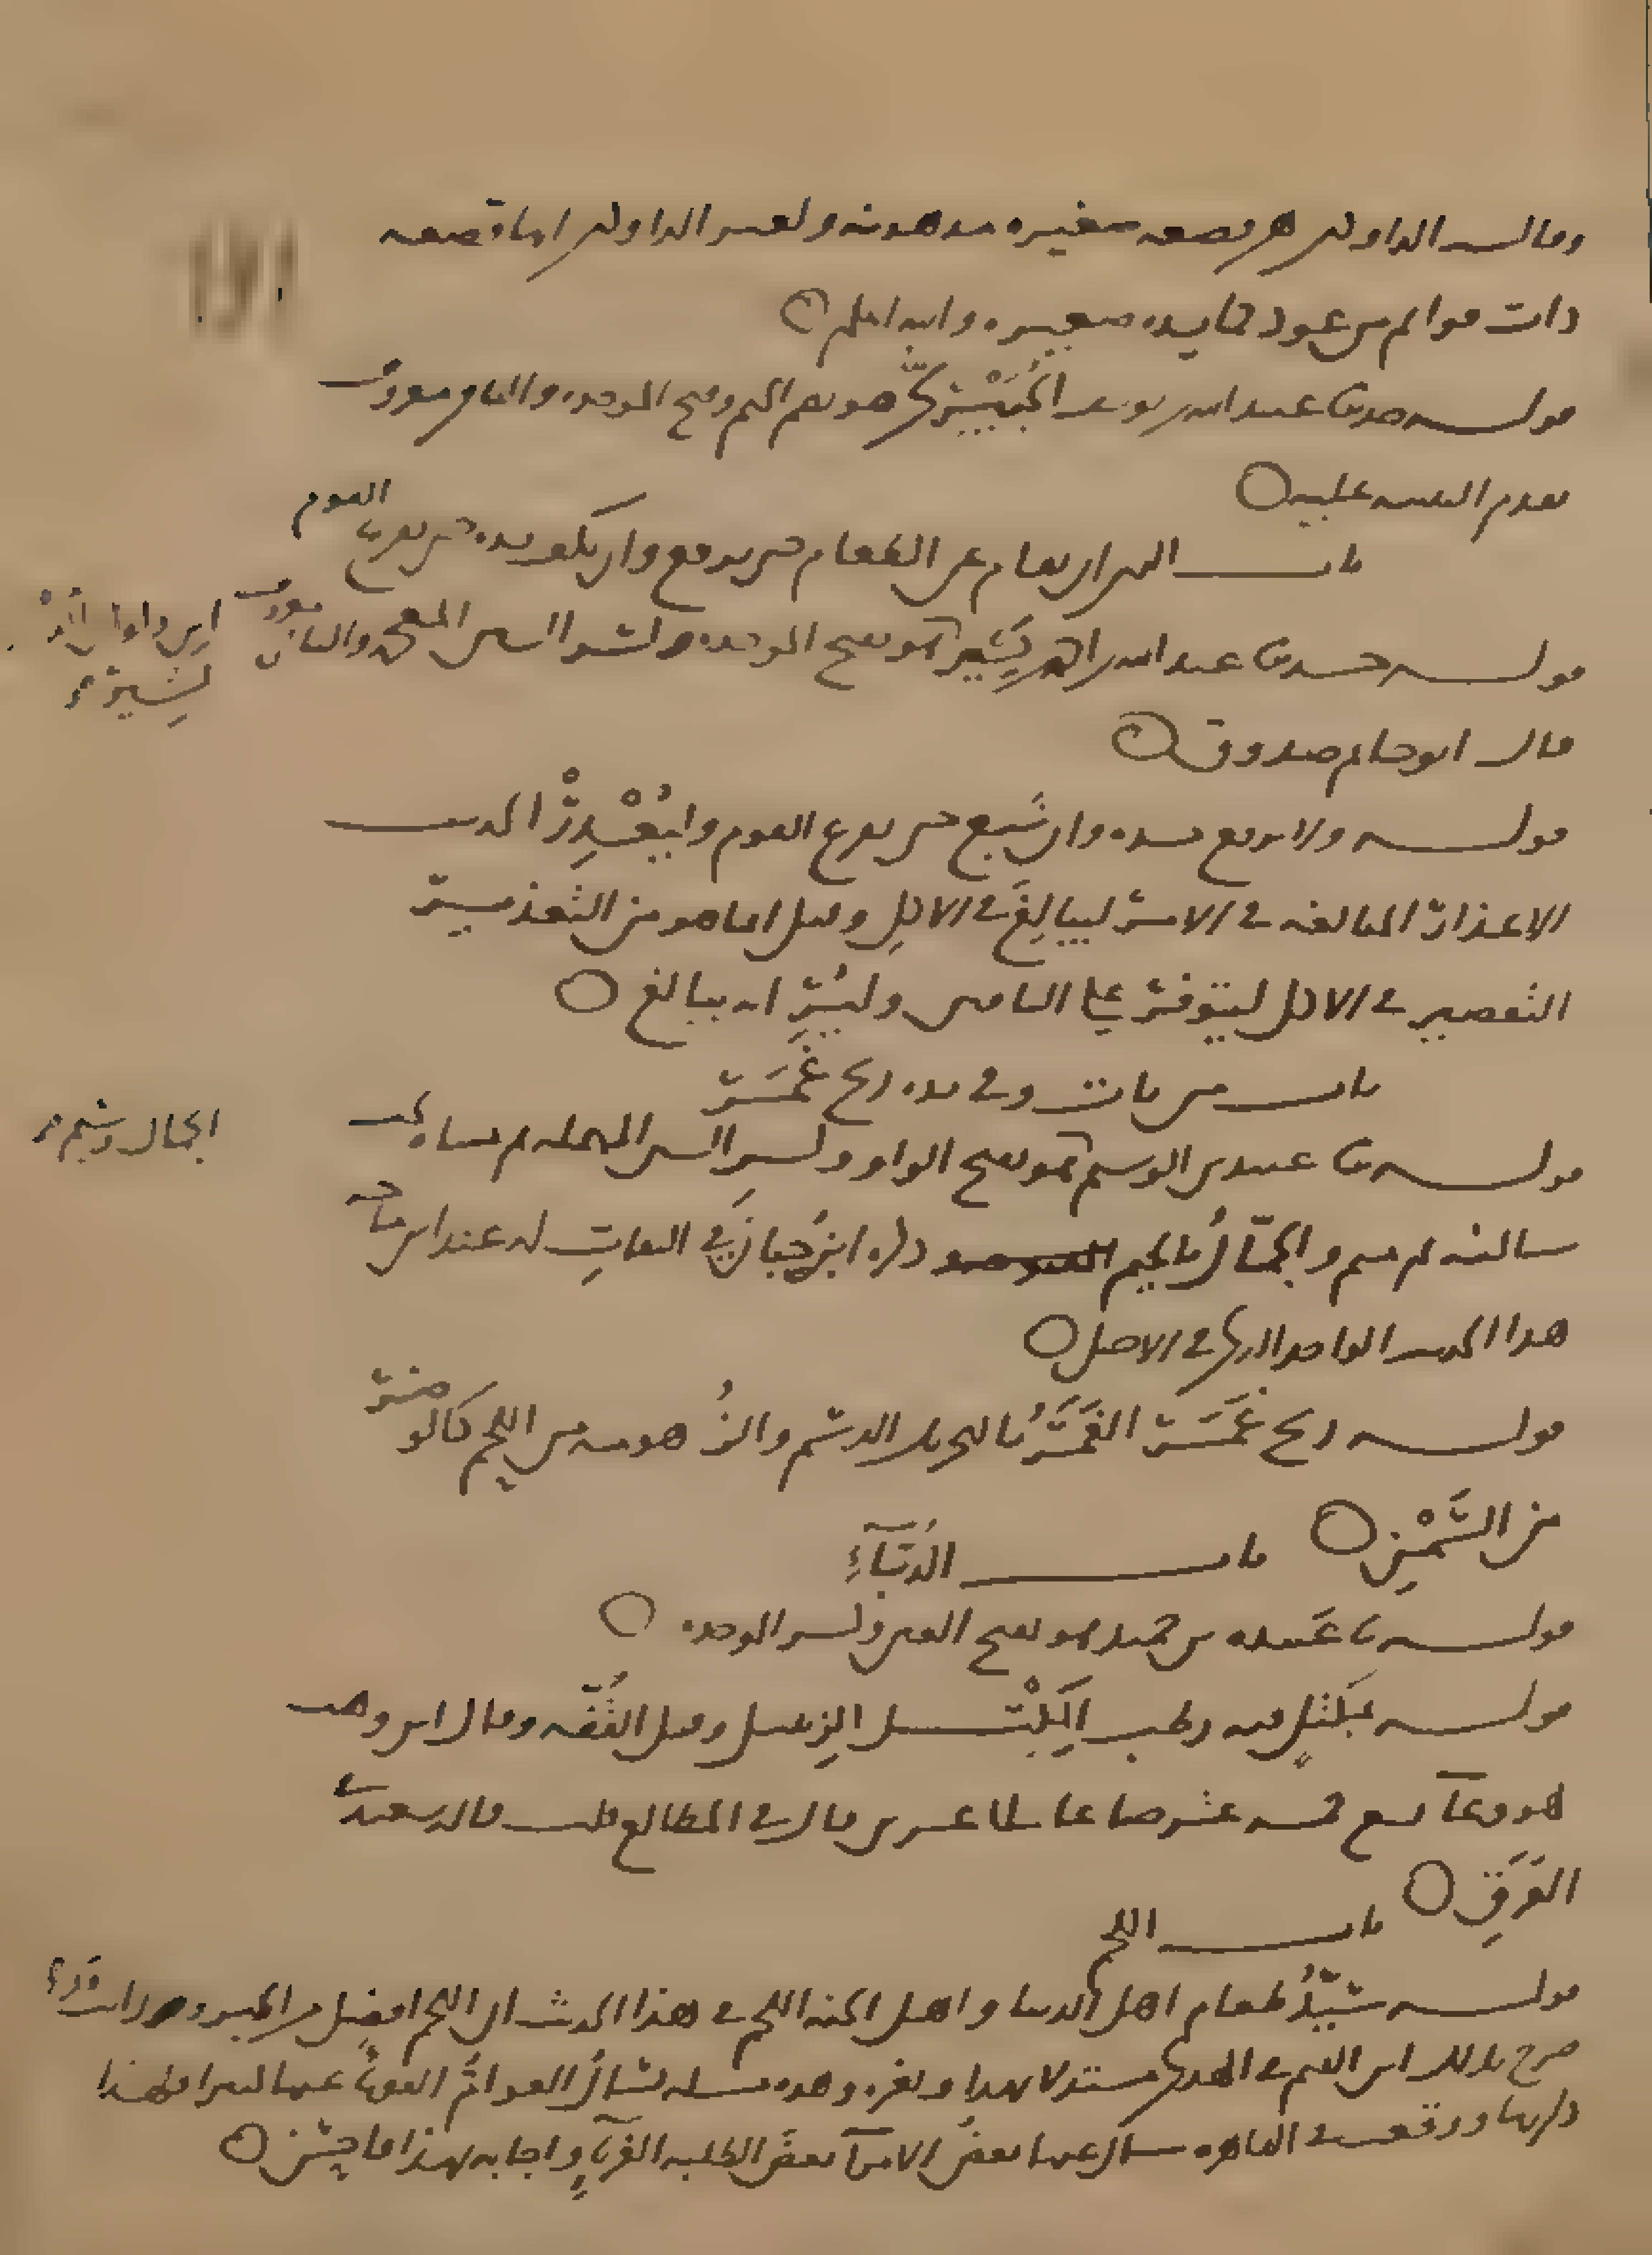 وقال الداودي هي قصعه صغيره مدهونه ولغير الداودي انها قصعه
ذات قوائم من عود كمايده صغيره والله اعلم
قوله حدثنا عبد الله بن يوسف الجُبَيْرِيّ هو بضم الجيم وفتح الموحده والباقي معروف
تقدم التنبيه عليه
باب النهي ان يقام عن الطعام حتى يرفع وان يكف يده حتى يفرغ القوم
قوله حدثنا عبد الله بن احمد بن بَشِير هو بفتح الموحده وكسر الشين المعجمه والباقي معروف
ابن ذكوان
بشير
قال ابو حاتم صدوق
قوله ولا يرفع يده وان شبع حتى يفرغ القوم وليُعْذِرْ الحديث
الاعذار المبالغه في الامر ليبالغ في الاكل وقيل انما هو من التعذير
التقصير في الاكل ليتوفر على الباقين وليُرِ انه يبالغ
باب من بات وفي يده ريح غَمَر
قوله ثنا عبيد بن الوسيم هو بفتح الواو وكسر السين المهمله ثم مثناه تحت
الجمال وسيم
ساكنه ثم ميم والجمّالُ بالجيم ذكره ابن حبان في الثقاتِ له عند ابن ماجه
هذا الحديث الواحد الذي في الاصل
قوله ريح غَمَر الغَمَرُ بالتحريك الدسم والزُهومه من اللحم كالوضر
من السَّمْنِ باب الدُبّآءِ
قوله ثنا عَبيده بن حميد هو بفتح العين وكسر الموحده
قوله بمكتلٍ فيه رطب المِكْتل الزنبيل وقيل القُفّه وقال ابن وهب
هو وعآ يسع خمسه عشر صاعا الى عشرين قال في المطالع قلت قاله سعيد في
العَرَقِ
باب اللحم
قوله سَيّدُ طعام اهل الدنيا واهل الجنه اللحم في هذا الحديث ان اللحم افضل من الخبز
صرح بذلك ابن القيم في الهدي مستدلا بهذا وبغيره وهذه مسله تسالُ العوامُّ عنها كثيرا فلهذا
ذكرتها ووقعت في القاهره سال عنها بعضُ الامرآ بعضَ الطلبه الغربآءِ واجابه بهذا فاحسن